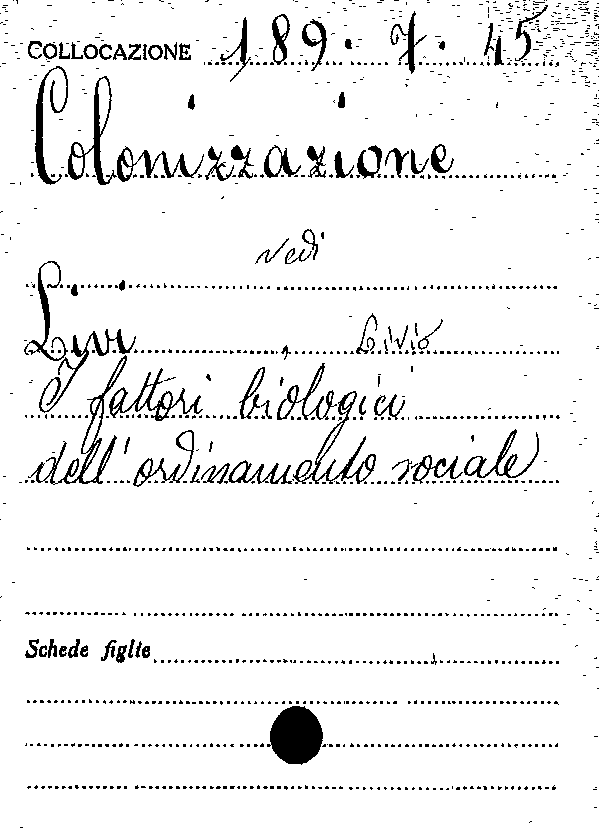 COLLOCAZIONE 189. 7. 45
Colonizzazione
vedi
Livi , Livio
I fattori biologici
dell'ordinamento sociale
Schede figlie